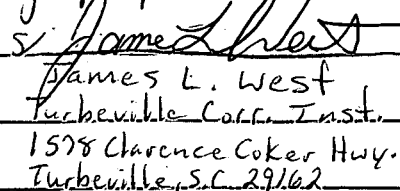 s/ James L West
James L. West
Turbeville Corr. Inst.
1578 Clarence Coker Hwy.
Turbeville, S.C. 29162